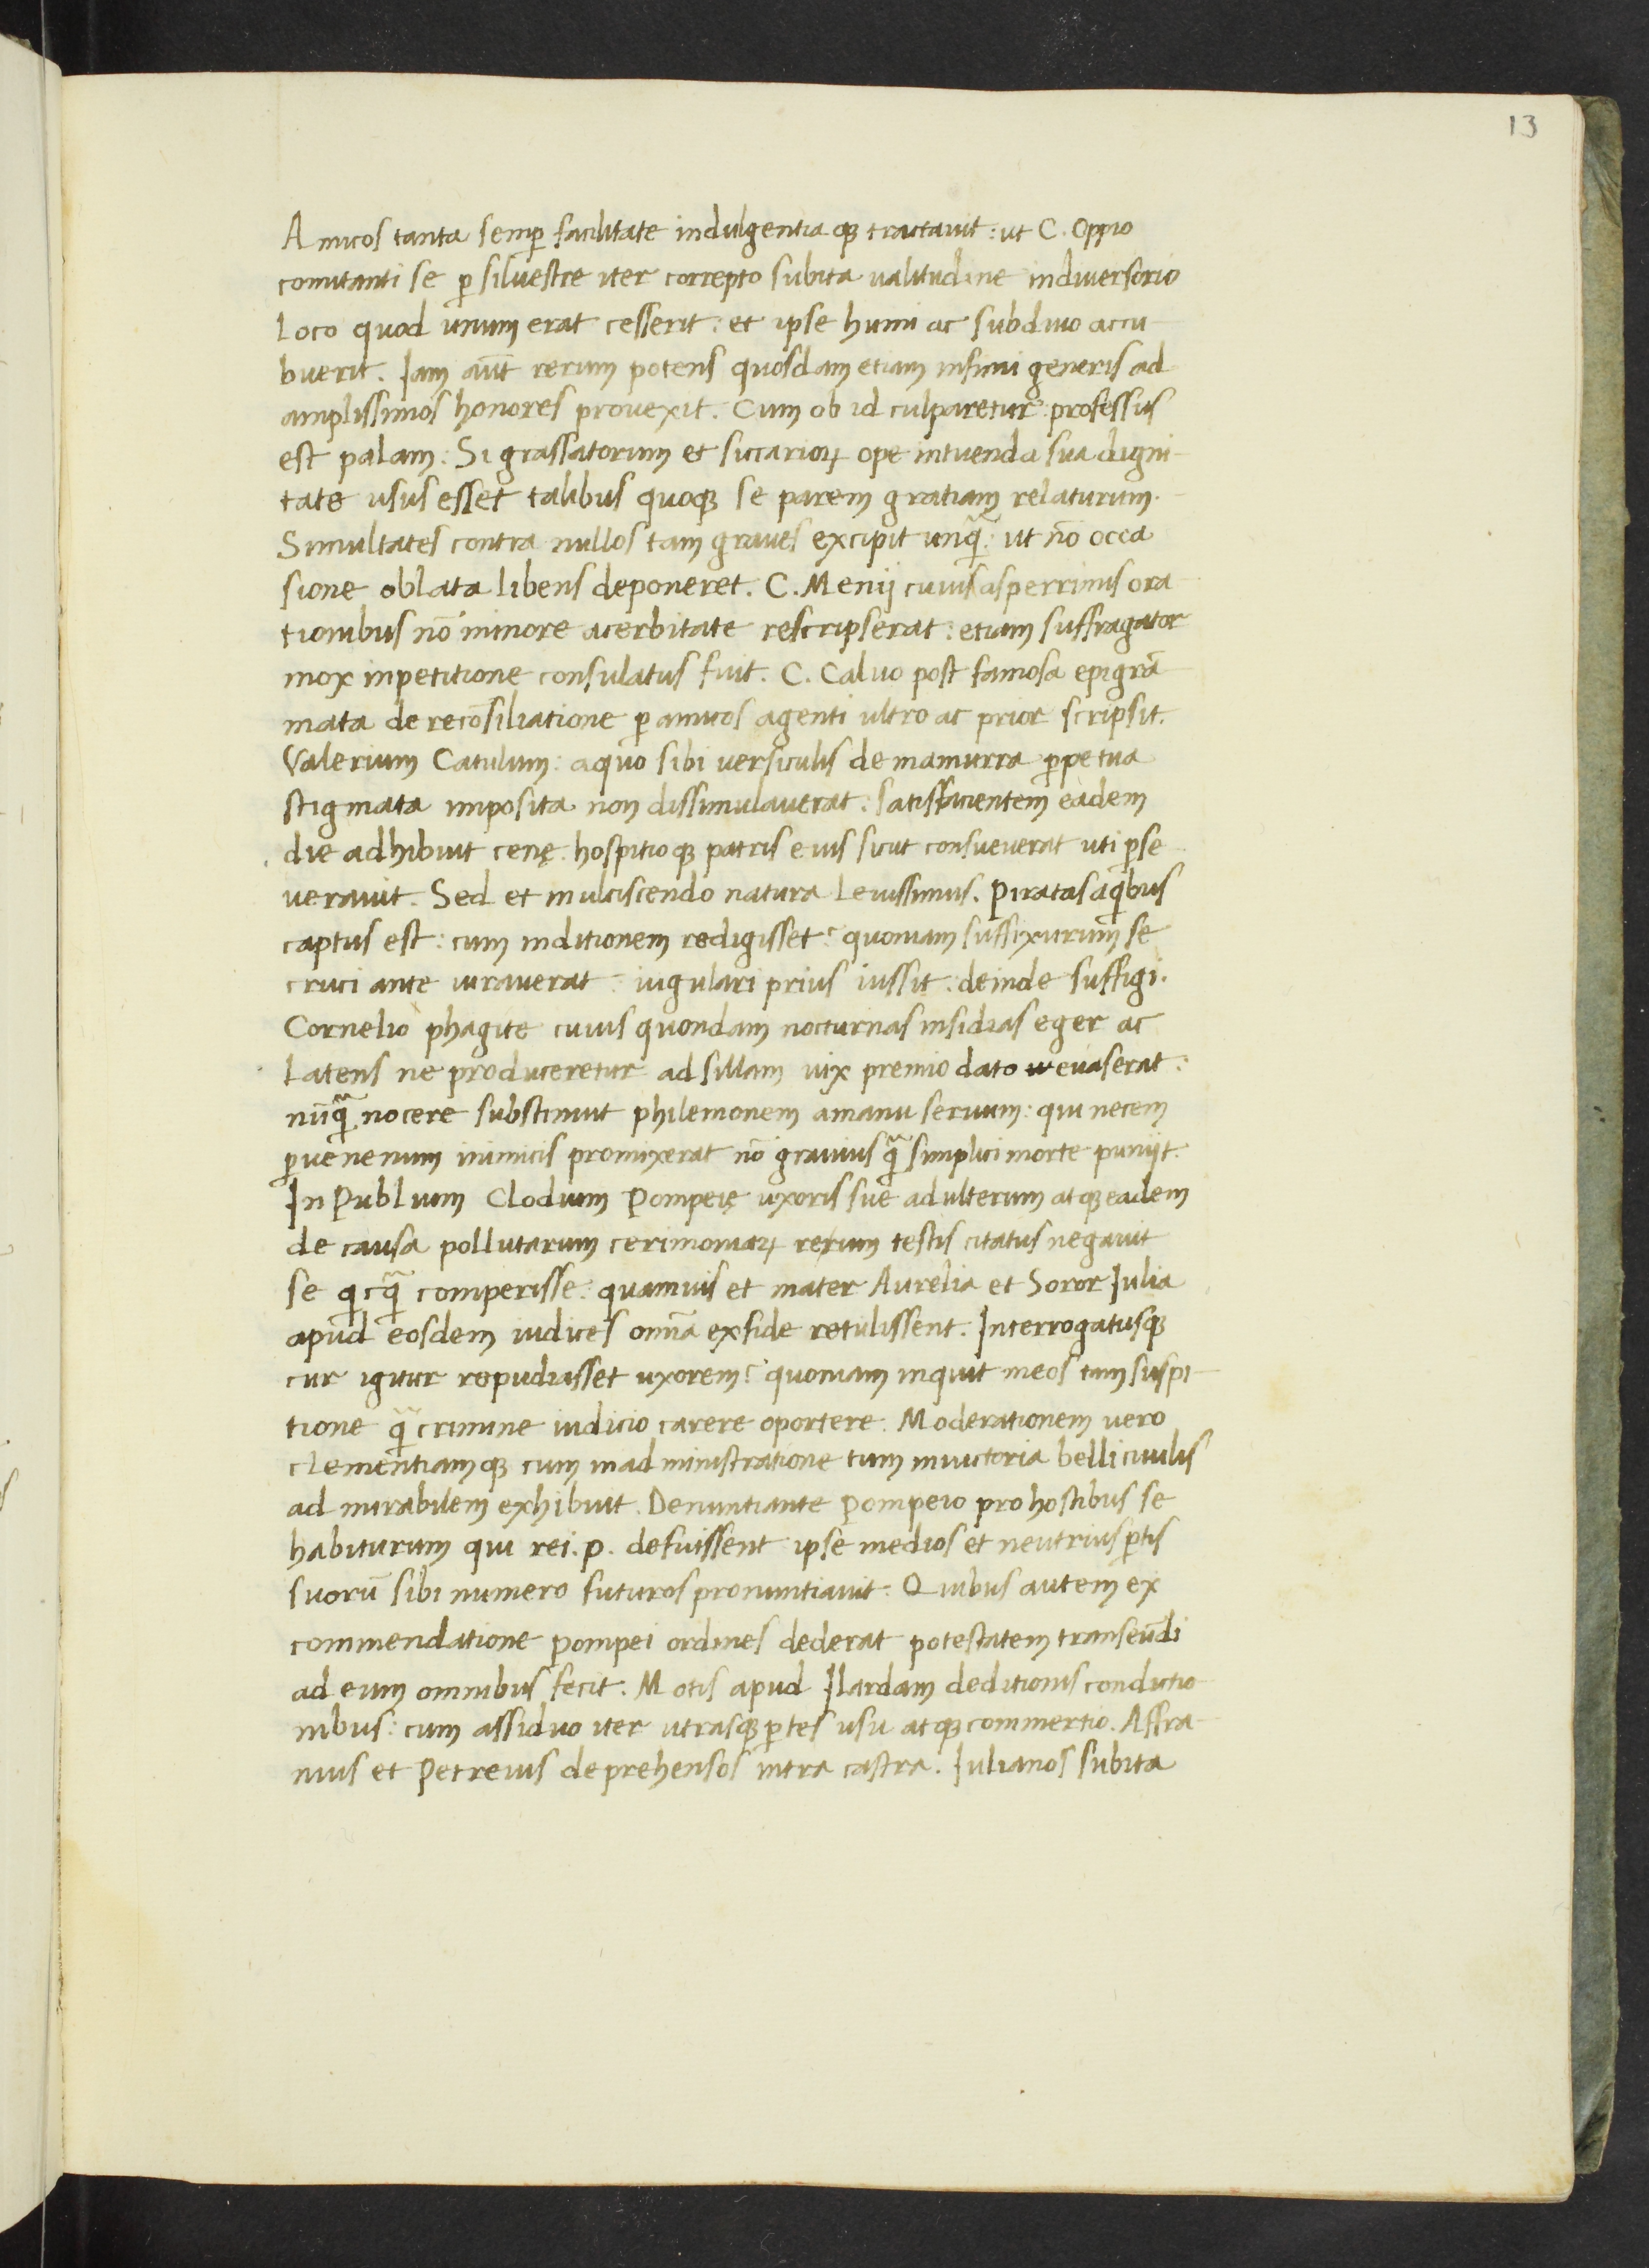 13
Amicos tanta semꝑ facilitate indulgentia qꝫ tractauit: ut C. Oppio
comitanti se ꝑ siluestre iter correpto subita ualitudine indiuersorio
loco quod unum erat cesserit: et ipse humi ac subdiuo accu-
buerit. Jam aūt rerum potens quosdam etiam infimi generis ad
amplissimos honores prouexit. Cum ob id culparetur: professus
est palam: Si grassatorum et siccarioꝝ ope intuenda sua digni-
tate usus esset talibus quoqꝫ se parem gratiam relaturum.
Simultates contra nullos tam graues excipit unq̃: ut nō occa
sione oblata libens deponeret. C. Menij cuius asperrimis ora
tionibus nō minore acerbitate rescripserat: etiam suffragator
mox inpetitione consulatus fuit. C. Caluo post famosa epigrā
mata de recōsiliatione ꝑ amicos agenti ultro ac prior scripsit.
Valerium Catulum: aquo sibi uersiculis de mamurra ꝑpetua
stigmata imposita non dissimulauerat: satisfacientem eadem
die adhibuit cenę. hospitio qꝫ patris eius sicut consueuerat uti ꝑse
uerauit. Sed et inulciscendo natura leuissimus. Piratas aqͥbus
captus est: cum inditionem redigisset: quoniam suffixurum se
cruci ante iurauerat: iugulari prius iussit: deinde suffigi.
Cornelio phagite cuius quondam nocturnas insidias eger ac
latens ne produceretur ad sillam uix premio dato euaserat:
nūq̃ nocere substinuit philemonem amanu seruum: qui necem
ꝑuenenum inimicis promixerat nō grauius q̃ simplici morte punijt.
In Publium Clodium Pompeię uxoris sue adulterum atqꝫ eadem
de causa pollutarum cerimoniaꝝ rerum testis citatus negauit
se qͥcq̃ comperisse: quamuis et mater Aurelia et Soror Julia
apud eosdem iudices omīa exfide retulissent. Interrogatusqꝫ
cur igitur repudiasset uxorem? quoniam inquit meos tam suspi-
tione q̃ crimine iudicio carere oportere. Moderationem uero
clementiam qꝫ cum inadministratione tum inuictoria belli ciuilis
ad mirabilem exhibuit. Denuntiante Pompeio pro hostibus se
habiturum qui rei. p. defuissent ipse medios et neutrius ꝑtis
suorū sibi numero futuros pronuntiauit. Quibus autem ex
commendatione Pompei ordines dederat potestatem transeūdi
ad eum omnibus fecit. Motis apud Ilardam deditionis condictio
nibus: cum assiduo iter utrasqꝫ ꝑtes usu atqꝫ commertio. Affra-
nius et Petreius deprehensos intra castra. Julianos subita